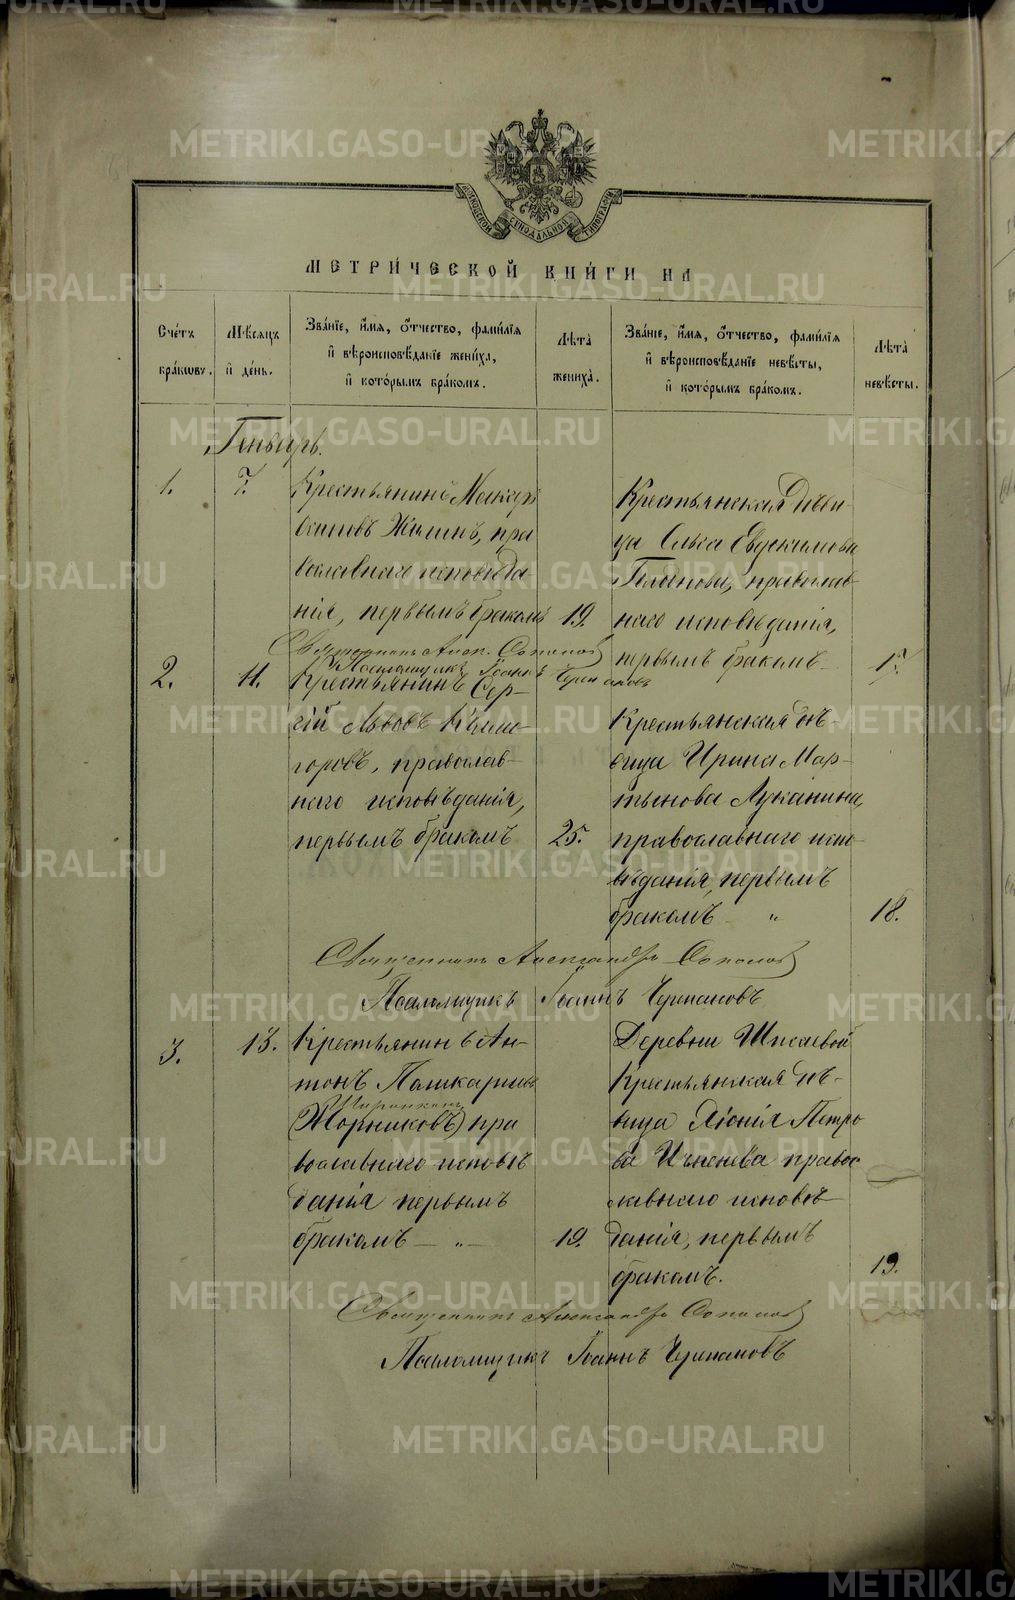 МОСКОВСКОЙ СѴНОДАЛЬНОЙ ТИПОГРАФІИ
МЕТРИ́ЧЕСКОЙ КНИ́ГИ НА
Сче́тъ бра́кѡву.
Мѣсяцъ и҆ де́нь.
Зва́нїе, и҆́мя, ѻ҆́тчество, фами́лїя
и҆ вѣроисповѣ́данїе жениха̀,
и҆ кото́рымъ бра́комъ.
Лѣта̀ жениха̀.
Зва́нїе, и҆́мя, ѻ҆́тчество, фами́лїя
и҆ вѣроисповѣ́данїе невѣ́сты,
и҆ кото́рымъ бра́комъ.
Лѣта̀ невѣ́сты.
Генварь.
1. 7. Крестьянинъ Макаръ
Осиповъ Жилинъ, пра
вославнаго исповѣда-
нія, первымъ бракомъ 19.
Крестьянская дѣви-
ца Ольга Евдокимова
православ-
наго исповѣданія,
первымъ бракомъ 17.
Священникъ Алек. Соколовъ
Псаломщикъ Іоаннъ Черпановъ
2. 11. Крестьянинъ Сер-
гій Львовъ
горовъ, православ-
наго исповѣданія,
первымъ бракомъ 25.
Крестьянская дѣ-
вица Ирина Мар-
тьянова Луканина,
православнаго испо-
вѣданія, первымъ
бракомъ „ 18.
Священникъ Александръ Соколовъ
Псаломщикъ Іоаннъ Черпановъ
3. 13. Крестьянинъ Ан-
тонъ Поликарповъ
Широнкинъ
(Жорниковъ) пра
вославнаго исповѣ
данія первымъ
бракомъ — „ — 19.
Деревни
Крестьянская дѣ-
вица Петро
ва правос
лавнаго исповѣ-
данія, первымъ
бракомъ. 19.
Священникъ Александръ Соколовъ
Псаломщикъ Іоаннъ Черпановъ
METRIKI.GASO-URAL.RU